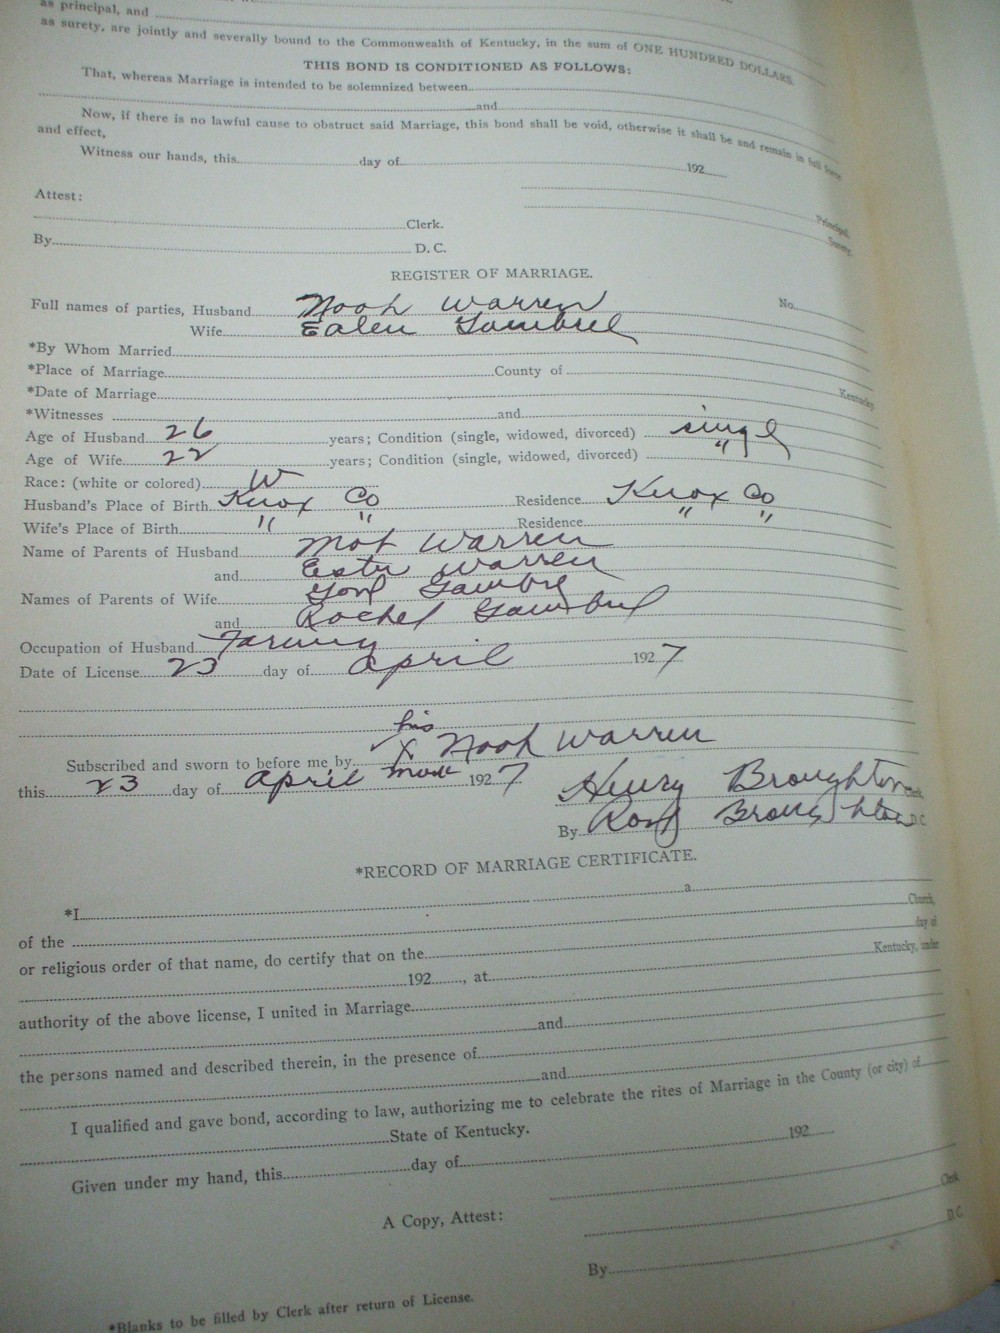 as principal, and
as surety, are jointly and severally bound to the Commonwealth of Kentucky, in the sum of ONE HUNDRED DOLLARS.
THIS BOND IS CONDITIONED AS FOLLOWS:
That, whereas Marriage is intended to be solemnized between
and
Now, if there is no lawful cause to obstruct said Marriage, this bond shall be void, otherwise it shall be and remain in full force
and effect,
Witness our hands, this day of 192
Attest:
Principal.
Clerk.
Surety.
By D. C.
REGISTER OF MARRIAGE.
Full names of parties, Husband Noah Warren No.
Wife Ealen Gambrel
*By Whom Married
*Place of Marriage County of Kentucky
*Date of Marriage
*Witnesses and
Age of Husband 26 years; Condition (single, widowed, divorced) singel
Age of Wife 22 years; Condition (single, widowed, divorced) "
Race: (white or colored) W
Husband's Place of Birth Knox Co Residence Knox Co
Wife's Place of Birth " " Residence " "
Name of Parents of Husband Mot Warren
and Ester Warren
Names of Parents of Wife Gambrel
and Rachel Gambrel
Occupation of Husband Farming
Date of License 23 day of April 1927
his
Subscribed and sworn to before me by X Noah Warren
mark
this 23 day of April 1927 Henry Broughton Clerk,
By Broughton D C
*RECORD OF MARRIAGE CERTIFICATE.
*I a
of the Church,
or religious order of that name, do certify that on the day of
192 , at Kentucky, under
authority of the above license, I united in Marriage
and
the persons named and described therein, in the presence of
and
I qualified and gave bond, according to law, authorizing me to celebrate the rites of Marriage in the County (or city) of
State of Kentucky.
Given under my hand, this day of 192
A Copy, Attest:
Clerk
By D.C
*Blanks to be filled by Clerk after return of License.